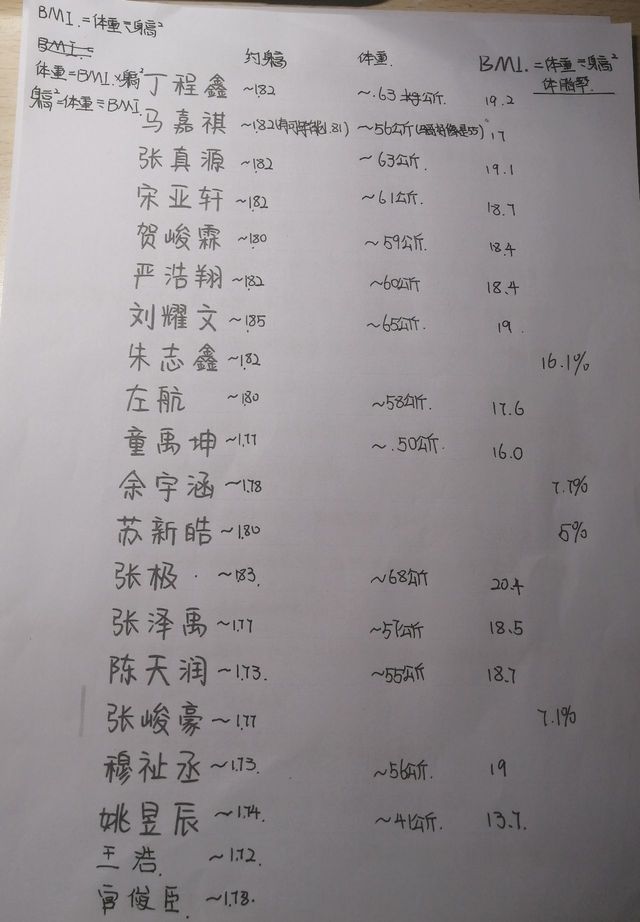 BMI.=体重÷身高²
BMI.=
体重=BMI.×身高²
身高²=体重÷BMI.
约身高 体重. BMI.=体重÷身高²
体脂率.
丁程鑫 ~1.82 ~.63公斤. 19.2
马嘉祺 ~1.82(有可能1.81) ~56公斤 17
张真源 ~1.82 ~63公斤. 19.1
宋亚轩 ~1.82 ~61公斤. 18.7
贺峻霖 ~1.80 ~59公斤. 18.4
严浩翔 ~1.82 ~60公斤 18.4
刘耀文 ~1.85 ~65公斤. 19.
朱志鑫 ~1.82 16.1%
左航 ~1.80 ~58公斤. 17.6
童禹坤 ~1.77 ~.50公斤. 16.0
余宇涵 ~1.78 7.7%
苏新皓 ~1.80 5%
张极. ~1.83. ~68公斤 20.4
张泽禹 ~1.77 ~57公斤 18.5
陈天润 ~1.73. ~55公斤 18.7
张峻豪 ~1.77 7.1%
穆祉丞 ~1.73. ~56公斤. 19
姚昱辰 ~1.74. ~41公斤. 13.7.
王浩. ~1.72.
官俊臣 ~1.78.